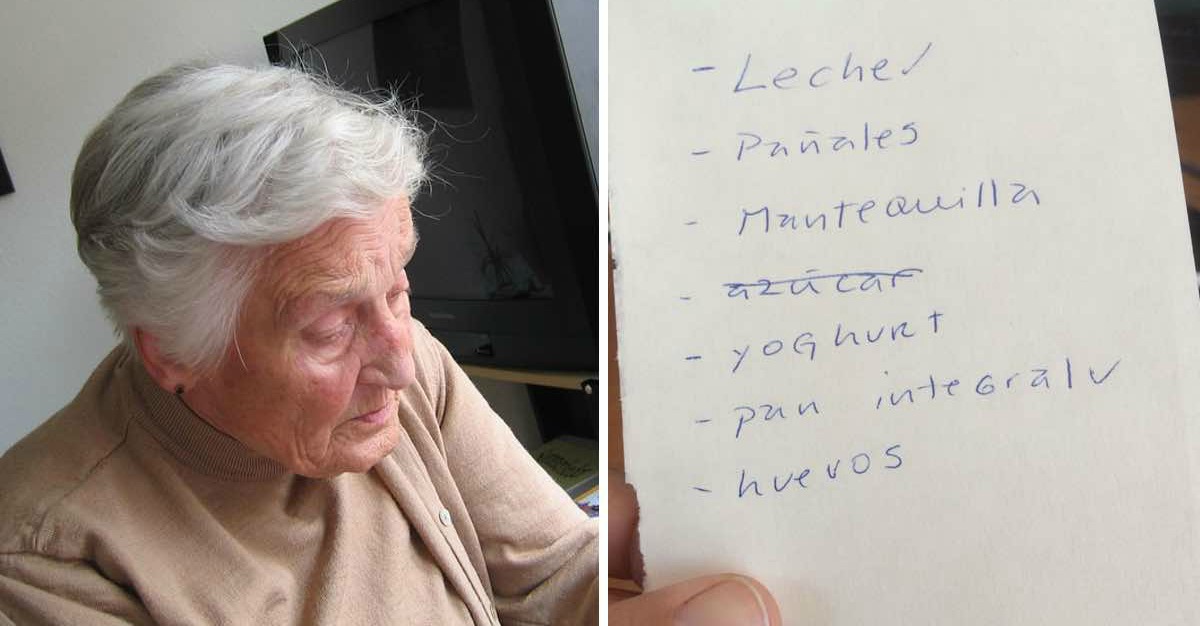 - Leche ✓
- Pañales
- Mantequilla
- azúcar
- yoghurt
- pan integral ✓
- huevos